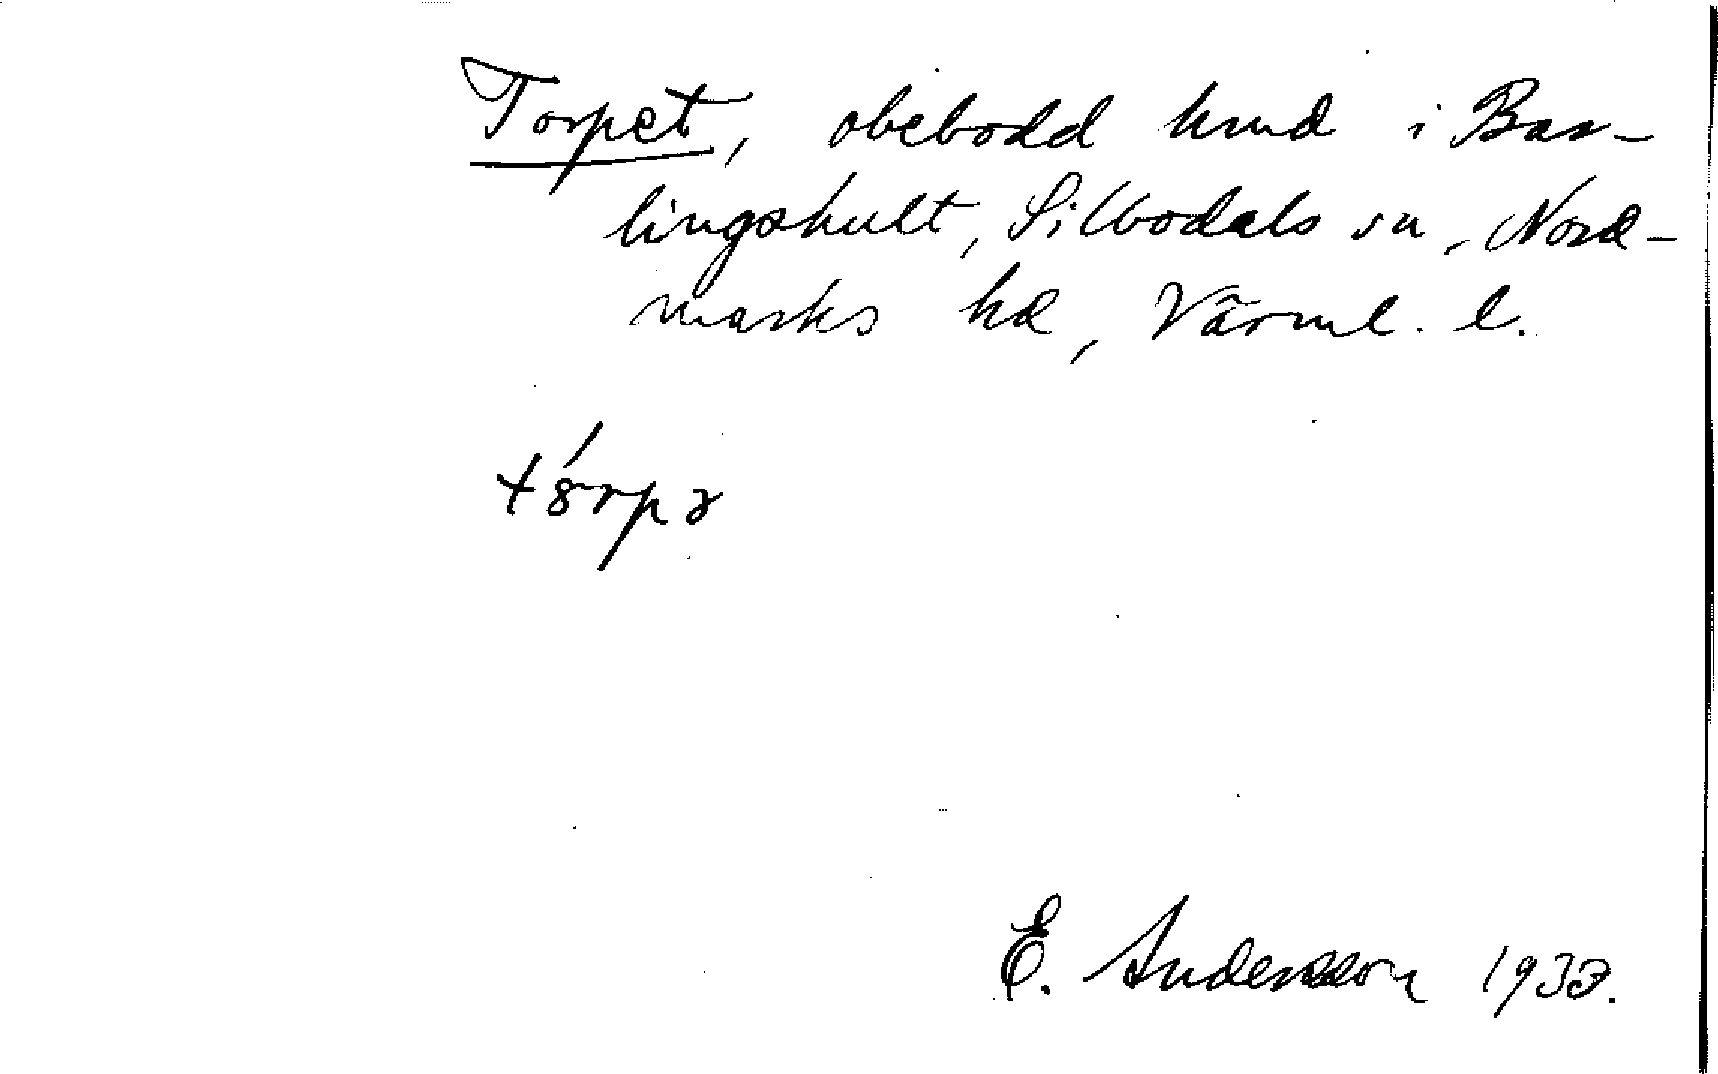 Torpet, obebodd hmd i Bas-
lingshult, Silbodals sn, Nord-
marks hd, Värml. l.
tórpə
E. Andersson 1933.